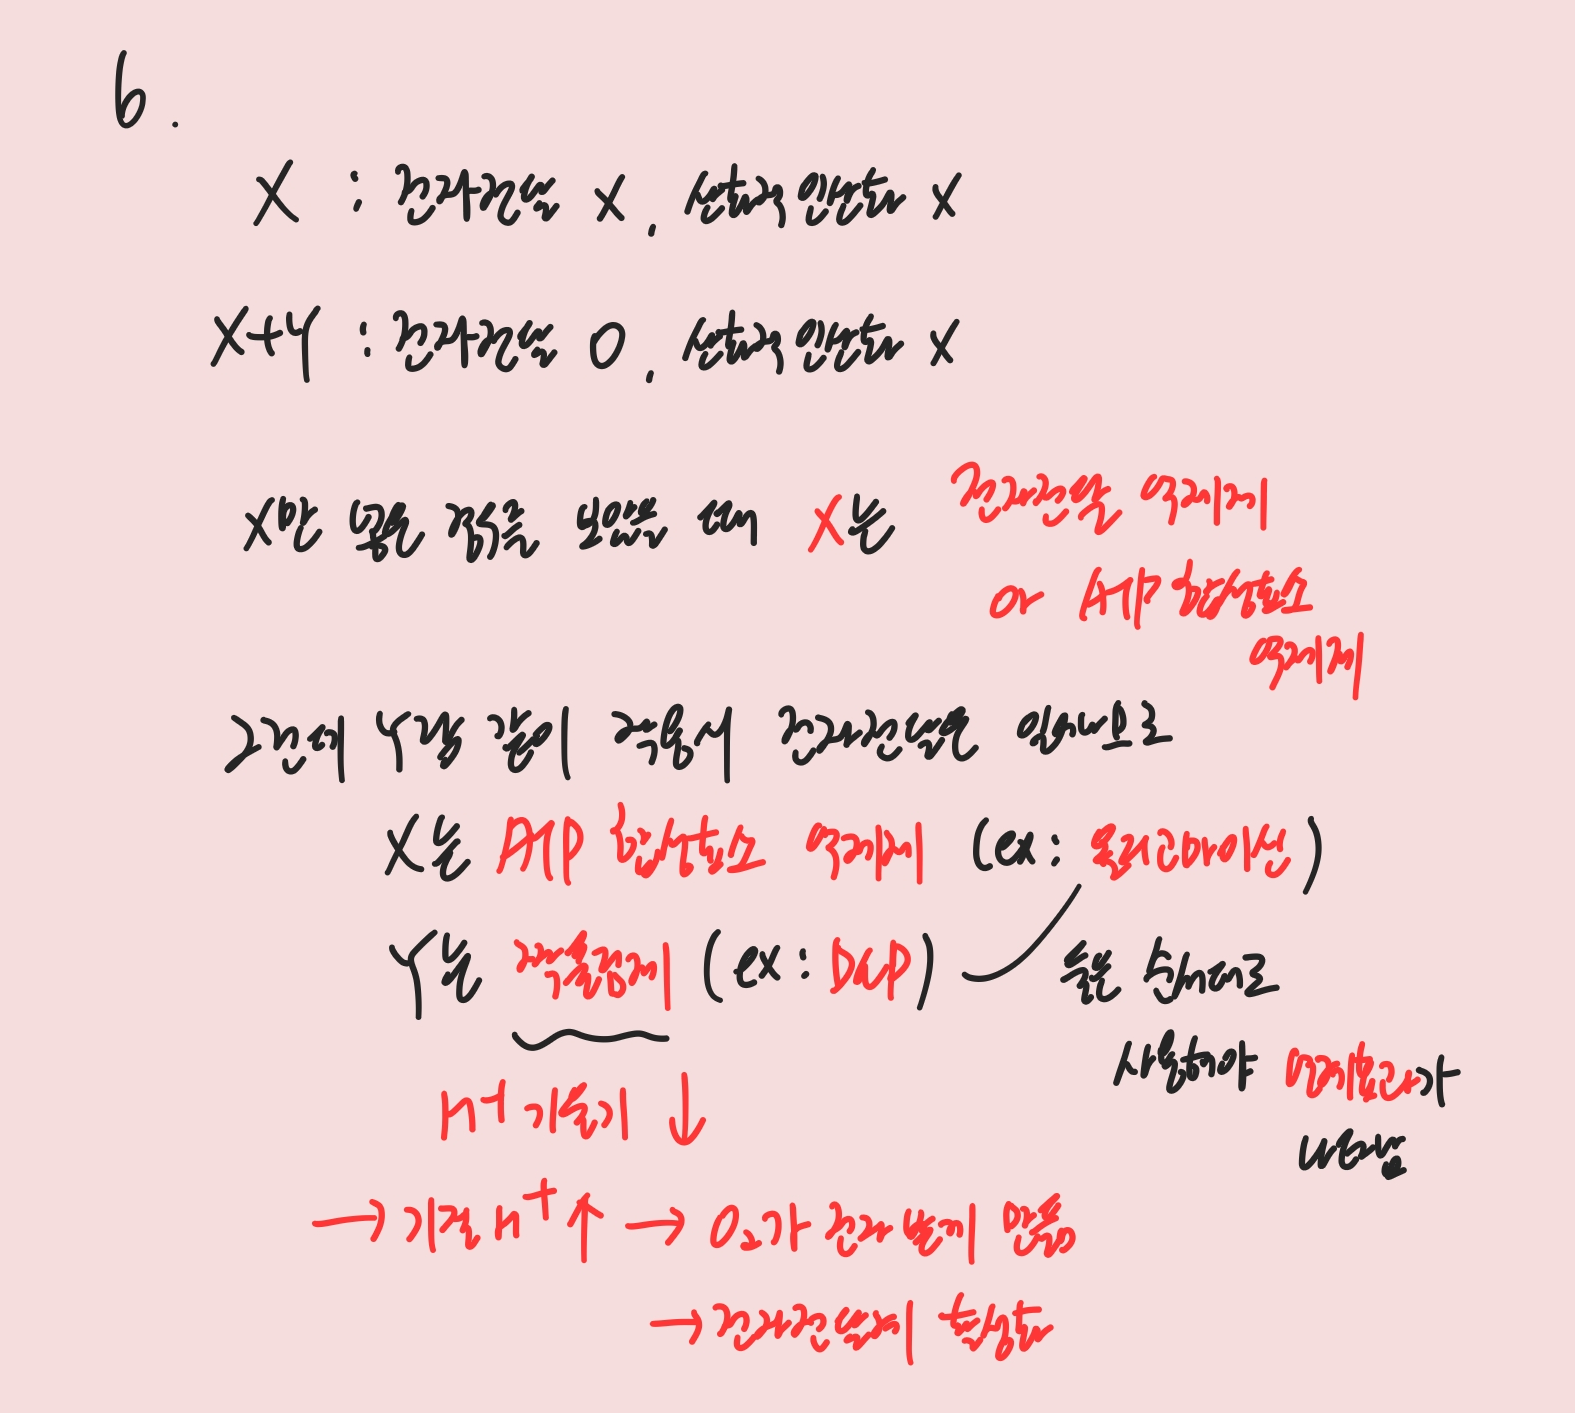 6.
X : 전자전달 X, 산화적 인산화 X
X+Y : 전자전달 O, 산화적 인산화 X
X만 넣은 경우를 보았을 때 X는 전자전달 억제제
or ATP 합성효소
억제제
그런데 Y랑 같이 작용시 전자전달은 일어나므로
X는 ATP 합성효소 억제제 (ex : 올리고마이신)
Y는 짝풀림제 (ex : DNP) 둘은 순서대로
사용해야 억제효과가
나타남
H+ 기울기 ↓
→ 기질 H+ ↑ → O₂가 전자 받게 만듦
→ 전자전달계 활성화